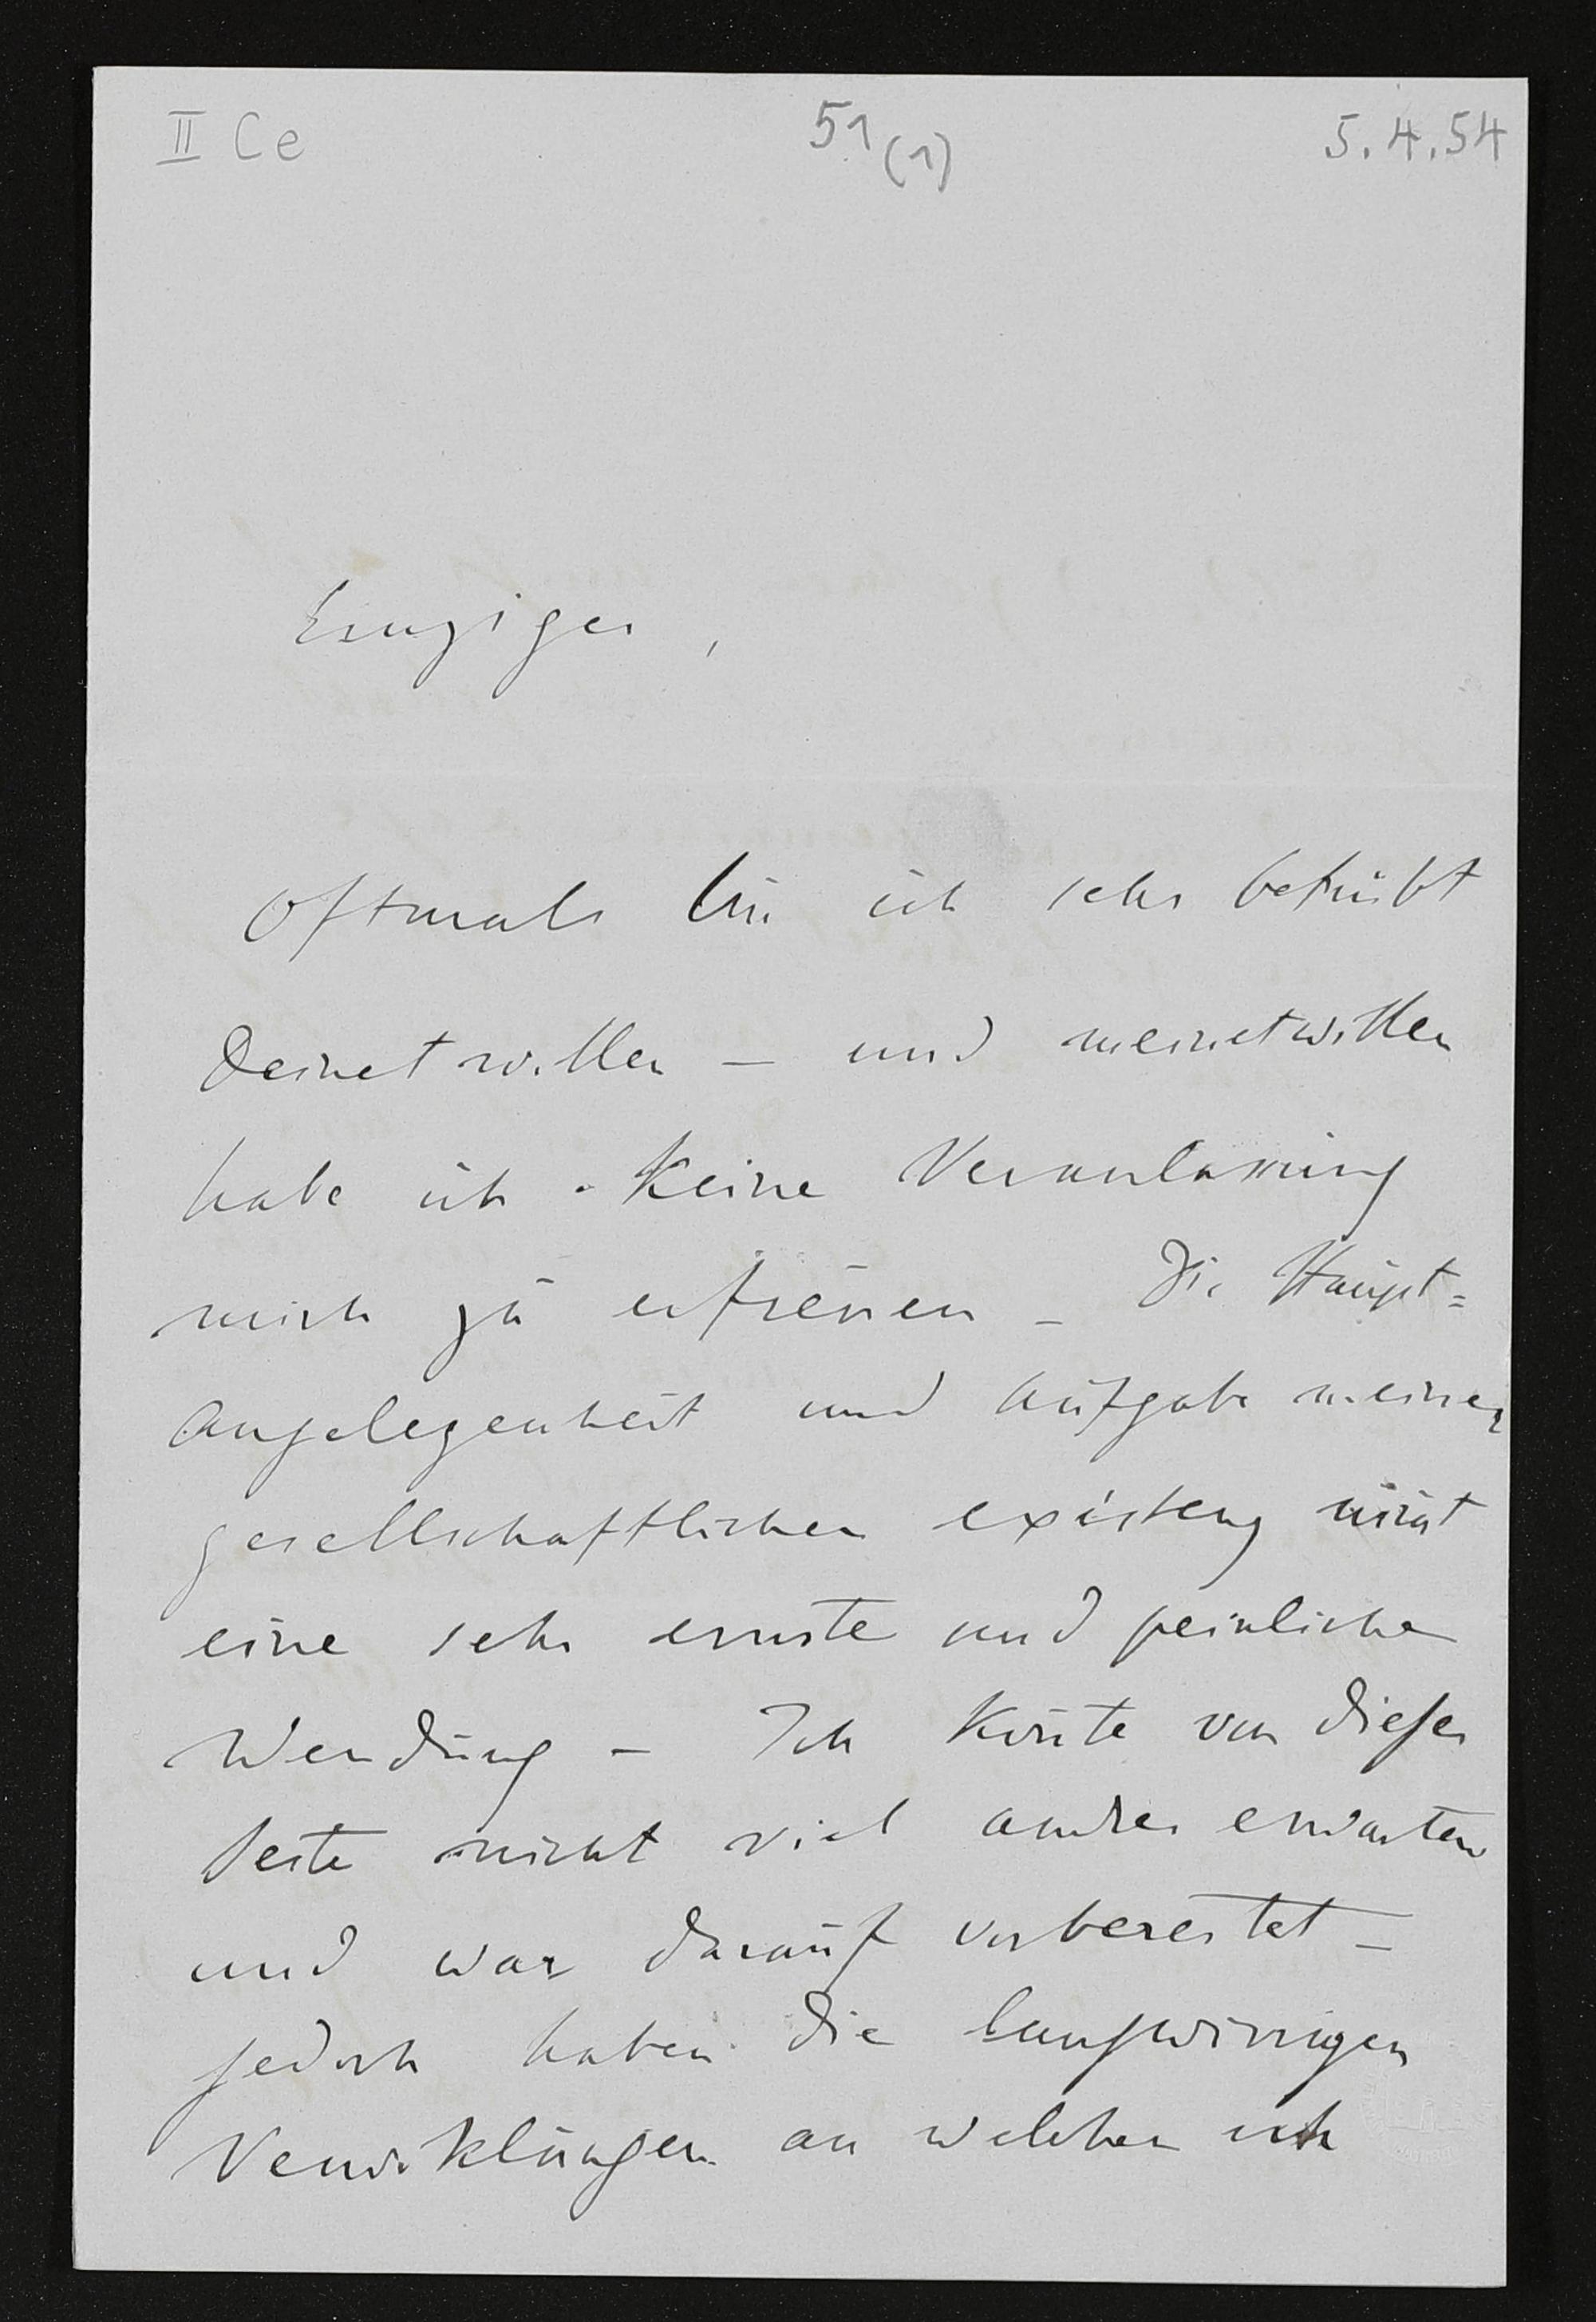 II Ce 51 (1) 5.4.54
Einziger,
Oftmals bin ich sehr betrübt
Deinetwillen – und meinetwillen
habe ich keine Veranlassung
mich zu erfreuen – Die Haupt=
Angelegenheit und Aufgabe meiner
gesellschaftlichen existenz nim̄t
eine sehr ernste und peinliche
Wendung – Ich kon̄te von dieser
Seite nicht viel andres erwarten
und war darauf vorbereitet –
jedoch haben die langwirrigen
Verwiklungen an welchen ich